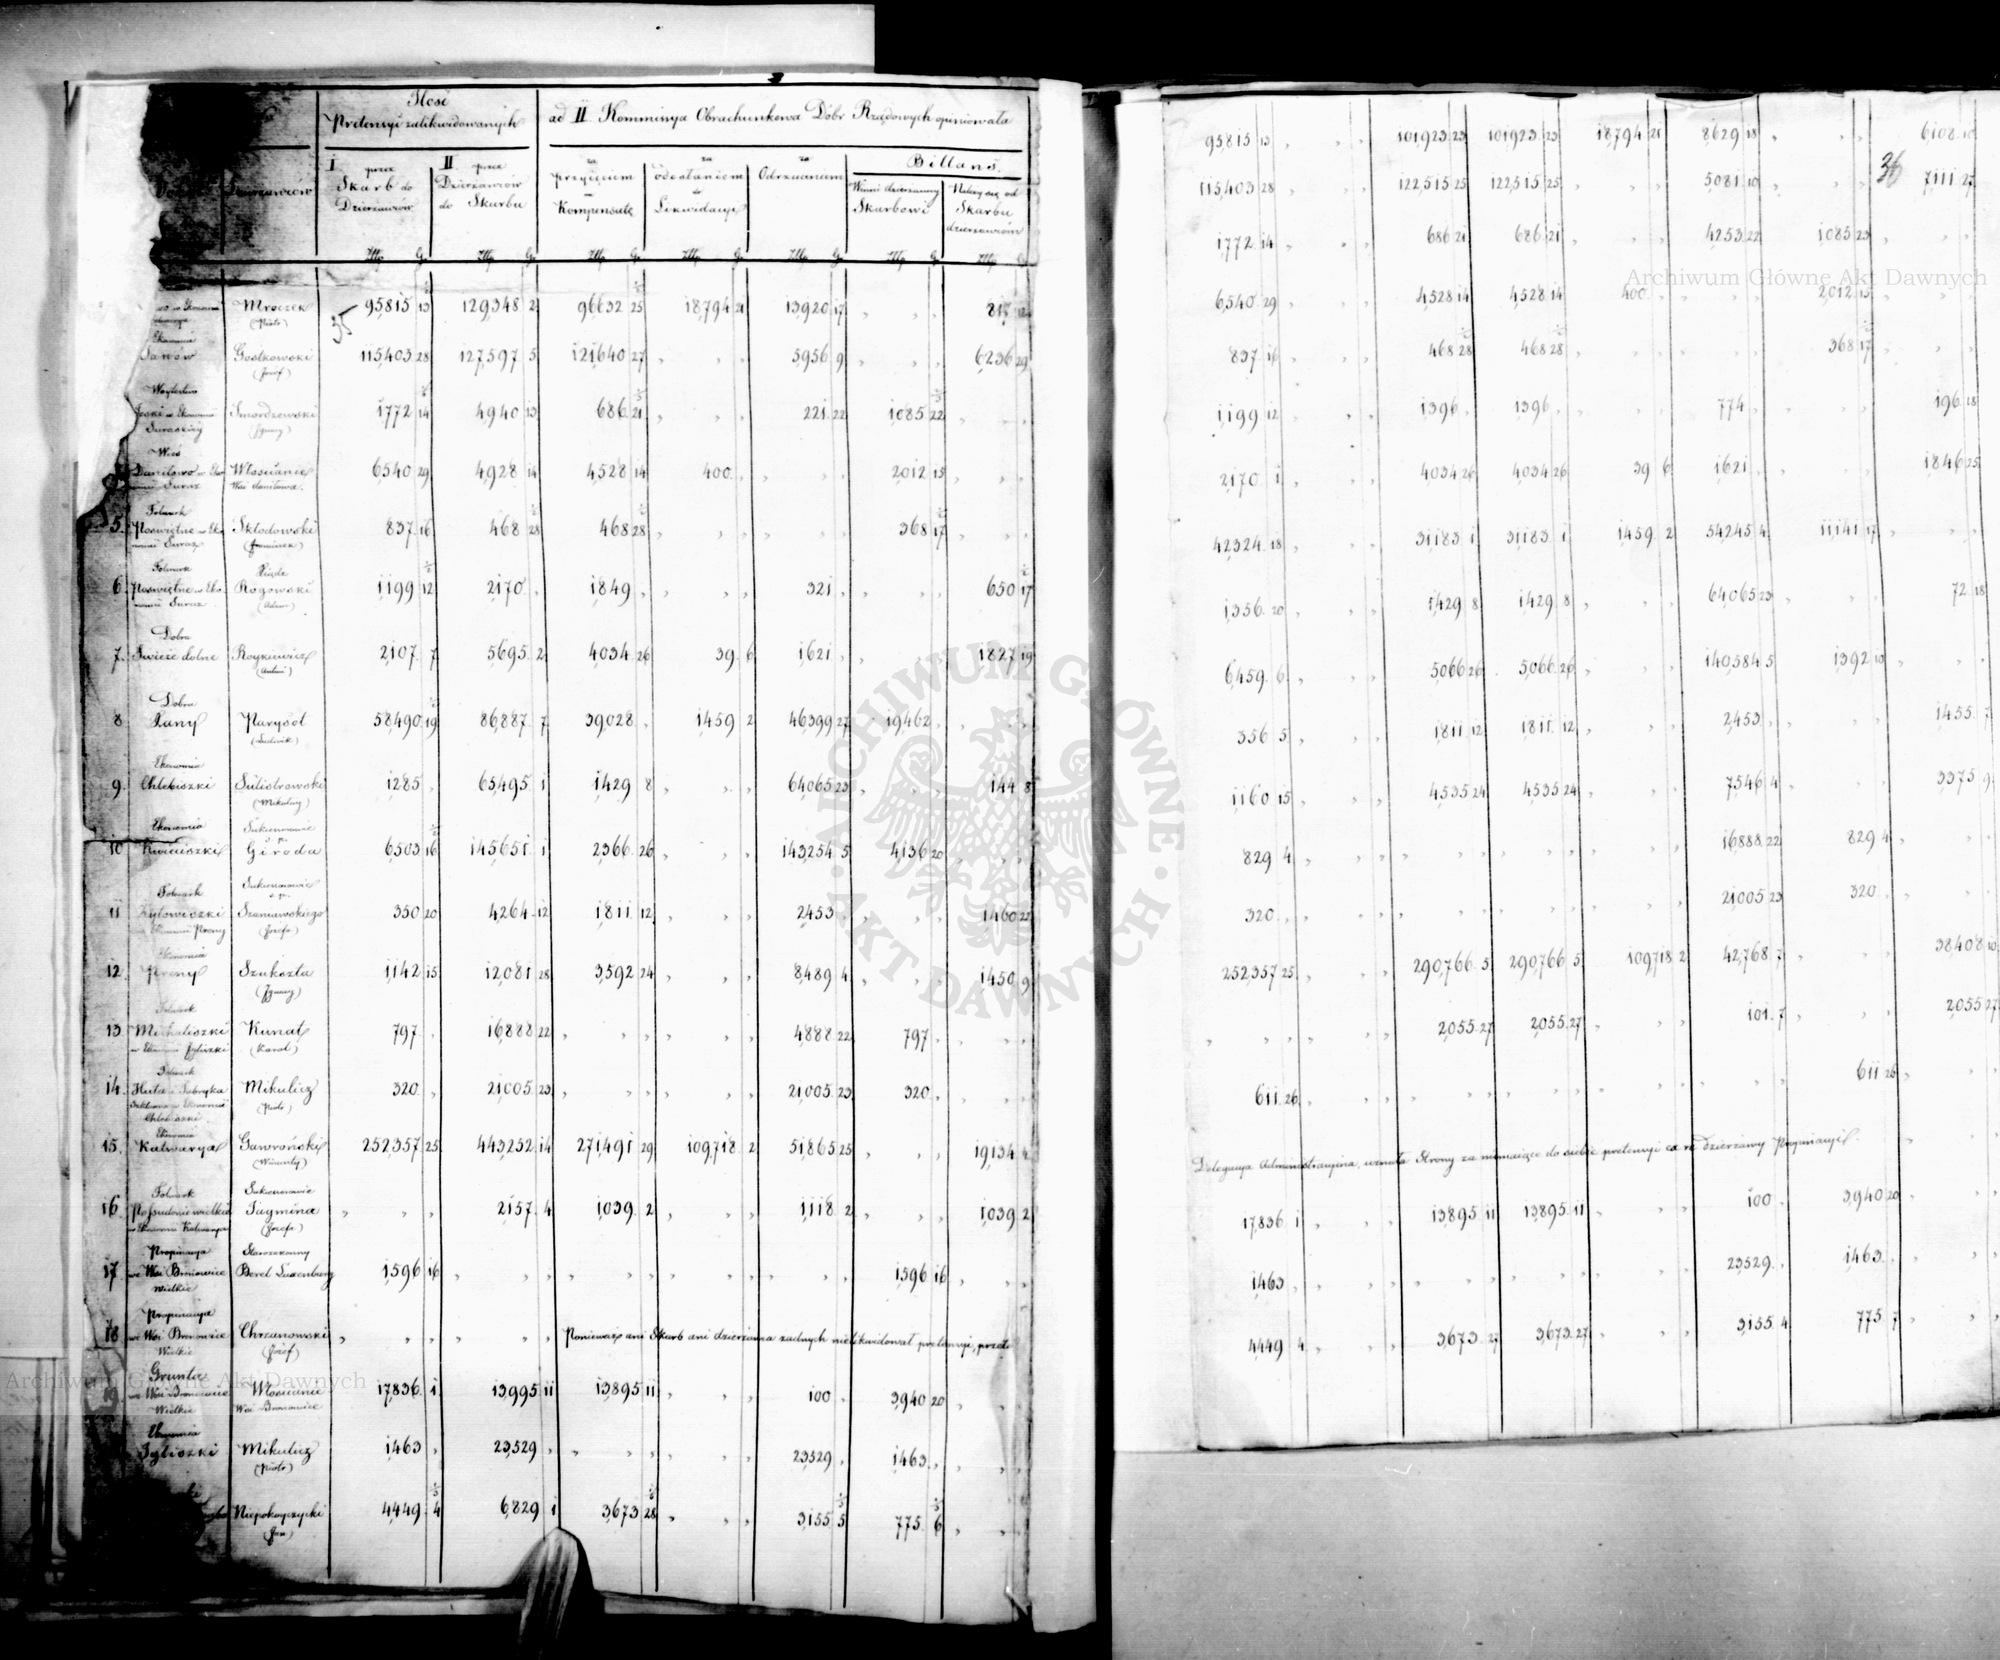 Ilość
Pretensyi zalikwidowanych
ad II Kommissya Obrachunkowa Dóbr Rządowych opiniowała
I przez Skarb do Dzierżawców
II przez Dzierżawców do Skarbu
za przyjęciem Kompensatę
za odesłaniem do Likwidacyi
za Odrzuceniem
Billans
Winni dzierzawcy Skarbowi
Należy się od Skarbu dzierzawcom
Złp Gr Złp Gr Złp Gr Złp Gr Złp Gr Złp Gr Złp Gr
35
Mroczek 95815 13 129348 2 96632 25 18,794 21 13920 17 817 12
Ekonomia
Janów Gostkowski (Józef) 115403 28 127,597 5 121640 27 5956 9 6236 29
Smordzewski (Ignacy) 1772 14 4940 13 686 21 221 22 1085 22
Wieś
Danilowo w Eko Włościanie 6540 29 4928 14 4528 14 400 2012 15
Suraz Wsi Danilowa
5. Folwark
Poswiętne w Eko Skłodowski 837 16 468 28 468 28 368 17
nomii Suraz
6. Folwark
Poswiętne w Eko Rogowski (Adam) 1199 12 2170 1849 321 650 17
nomii Suraz
7. Dobra
dolne 2107 7 5695 2 4034 26 39 6 1621 1827 19
8 Dobra
Parysot (Ludwik) 58490 19 86887 7 39028 1459 2 46399 27 19462
9. Ekonomia
Chlebiszki Sulistrowski (Mikołay) 1285 65495 1 1429 8 64065 23 144 8
10 Ekonomia Sukcessorowie
Kwieciszki Giroda 6503 16 145651 1 2366 26 143254 5 4136 20
11 Folwark
Szaniawskiego (Józefa) 350 20 4264 12 1811 12 2453 1460 22
12. Ekonomia
Preny Szukszta (Ignacy) 1142 15 12081 28 3592 24 8489 4 1450 9
13. Folwark
Michaliszki Kunat (Karol) 797 16888 22 4888 22 797
14. Folwark
Huta Fabryka Mikulicz (Piotr) 320 21005 23 21005 23 320
Chlebiszki
15. Ekonomia
Kalwarya Gawroński (Wincenty) 252357 25 443252 14 271491 29 109,718 2 51,865 25 19134 4
16. Folwark Sukcessorowie
(Józefa) 2157 4 1039 2 1118 2 1039 2
w Ekonomii Kalwarya
17. Propinacya Starozakonny
we Wsi Bronowice Berel Luxenburg 1596 16 1596 16
Wielkie
18. Propinacya
we Wsi Bronowice Chrzanowski (Józef) Ponieważ ani Skarb ani dzierzawca zadnych nielikwidował pretensyi, przeto
Wielkie
Grunta
we Wsi Bronowice Włościanie 17836 1 13995 11 13895 11 100 3940 20
Wielkie Wsi Bronowice
Ekonomia
Igliszki Mikulicz (Piotr) 1463 23,529 23529 1463
Niepokoyczycki (Jan) 4449 4 6829 1 3673 28 3155 5 775 6
95815 13 101,923 23 101923 23 18794 21 8629 18 6108 10
36
115403 28 122515 25 122515 25 5081 10 7111 27
1772 14 686 21 686 21 4253 22 1085 23
6540 29 4528 14 4528 14 400 2012 15
837 16 468 28 468 28 368 17
1199 12 1396 1396 774 196 18
2170 1 4034 26 4034 26 39 6 1621 1846 25
42324 18 31183 1 31183 1 1459 2 54245 4 11141 17
1356 20 1429 8 1429 8 64065 23 72 18
6459 6 5066 26 5066 26 140584 5 1392 10
356 5 1811 12 1811 12 2453 1455 7
1160 15 4535 24 4535 24 7546 4 3375 9
829 4 16888 22 829 4
320 21005 23 320
252357 25 290,766 5 290766 5 109718 2 42,768 7 38408 10
2055 27 2055 27 101 7 2055 27
611 26 611 26
Delegacya Administracyina, uznała Strony za niemaiące do siebie pretensyi co do dzierzawy Propinacyi.
17836 1 13895 11 13895 11 100 3940 20
1463 23529 1463
4449 4 3673 27 3673 27 3155 4 775 7
Archiwum Główne Akt Dawnych
ARCHIWUM GŁÓWNE AKT DAWNYCH
Archiwum Główne Akt Dawnych